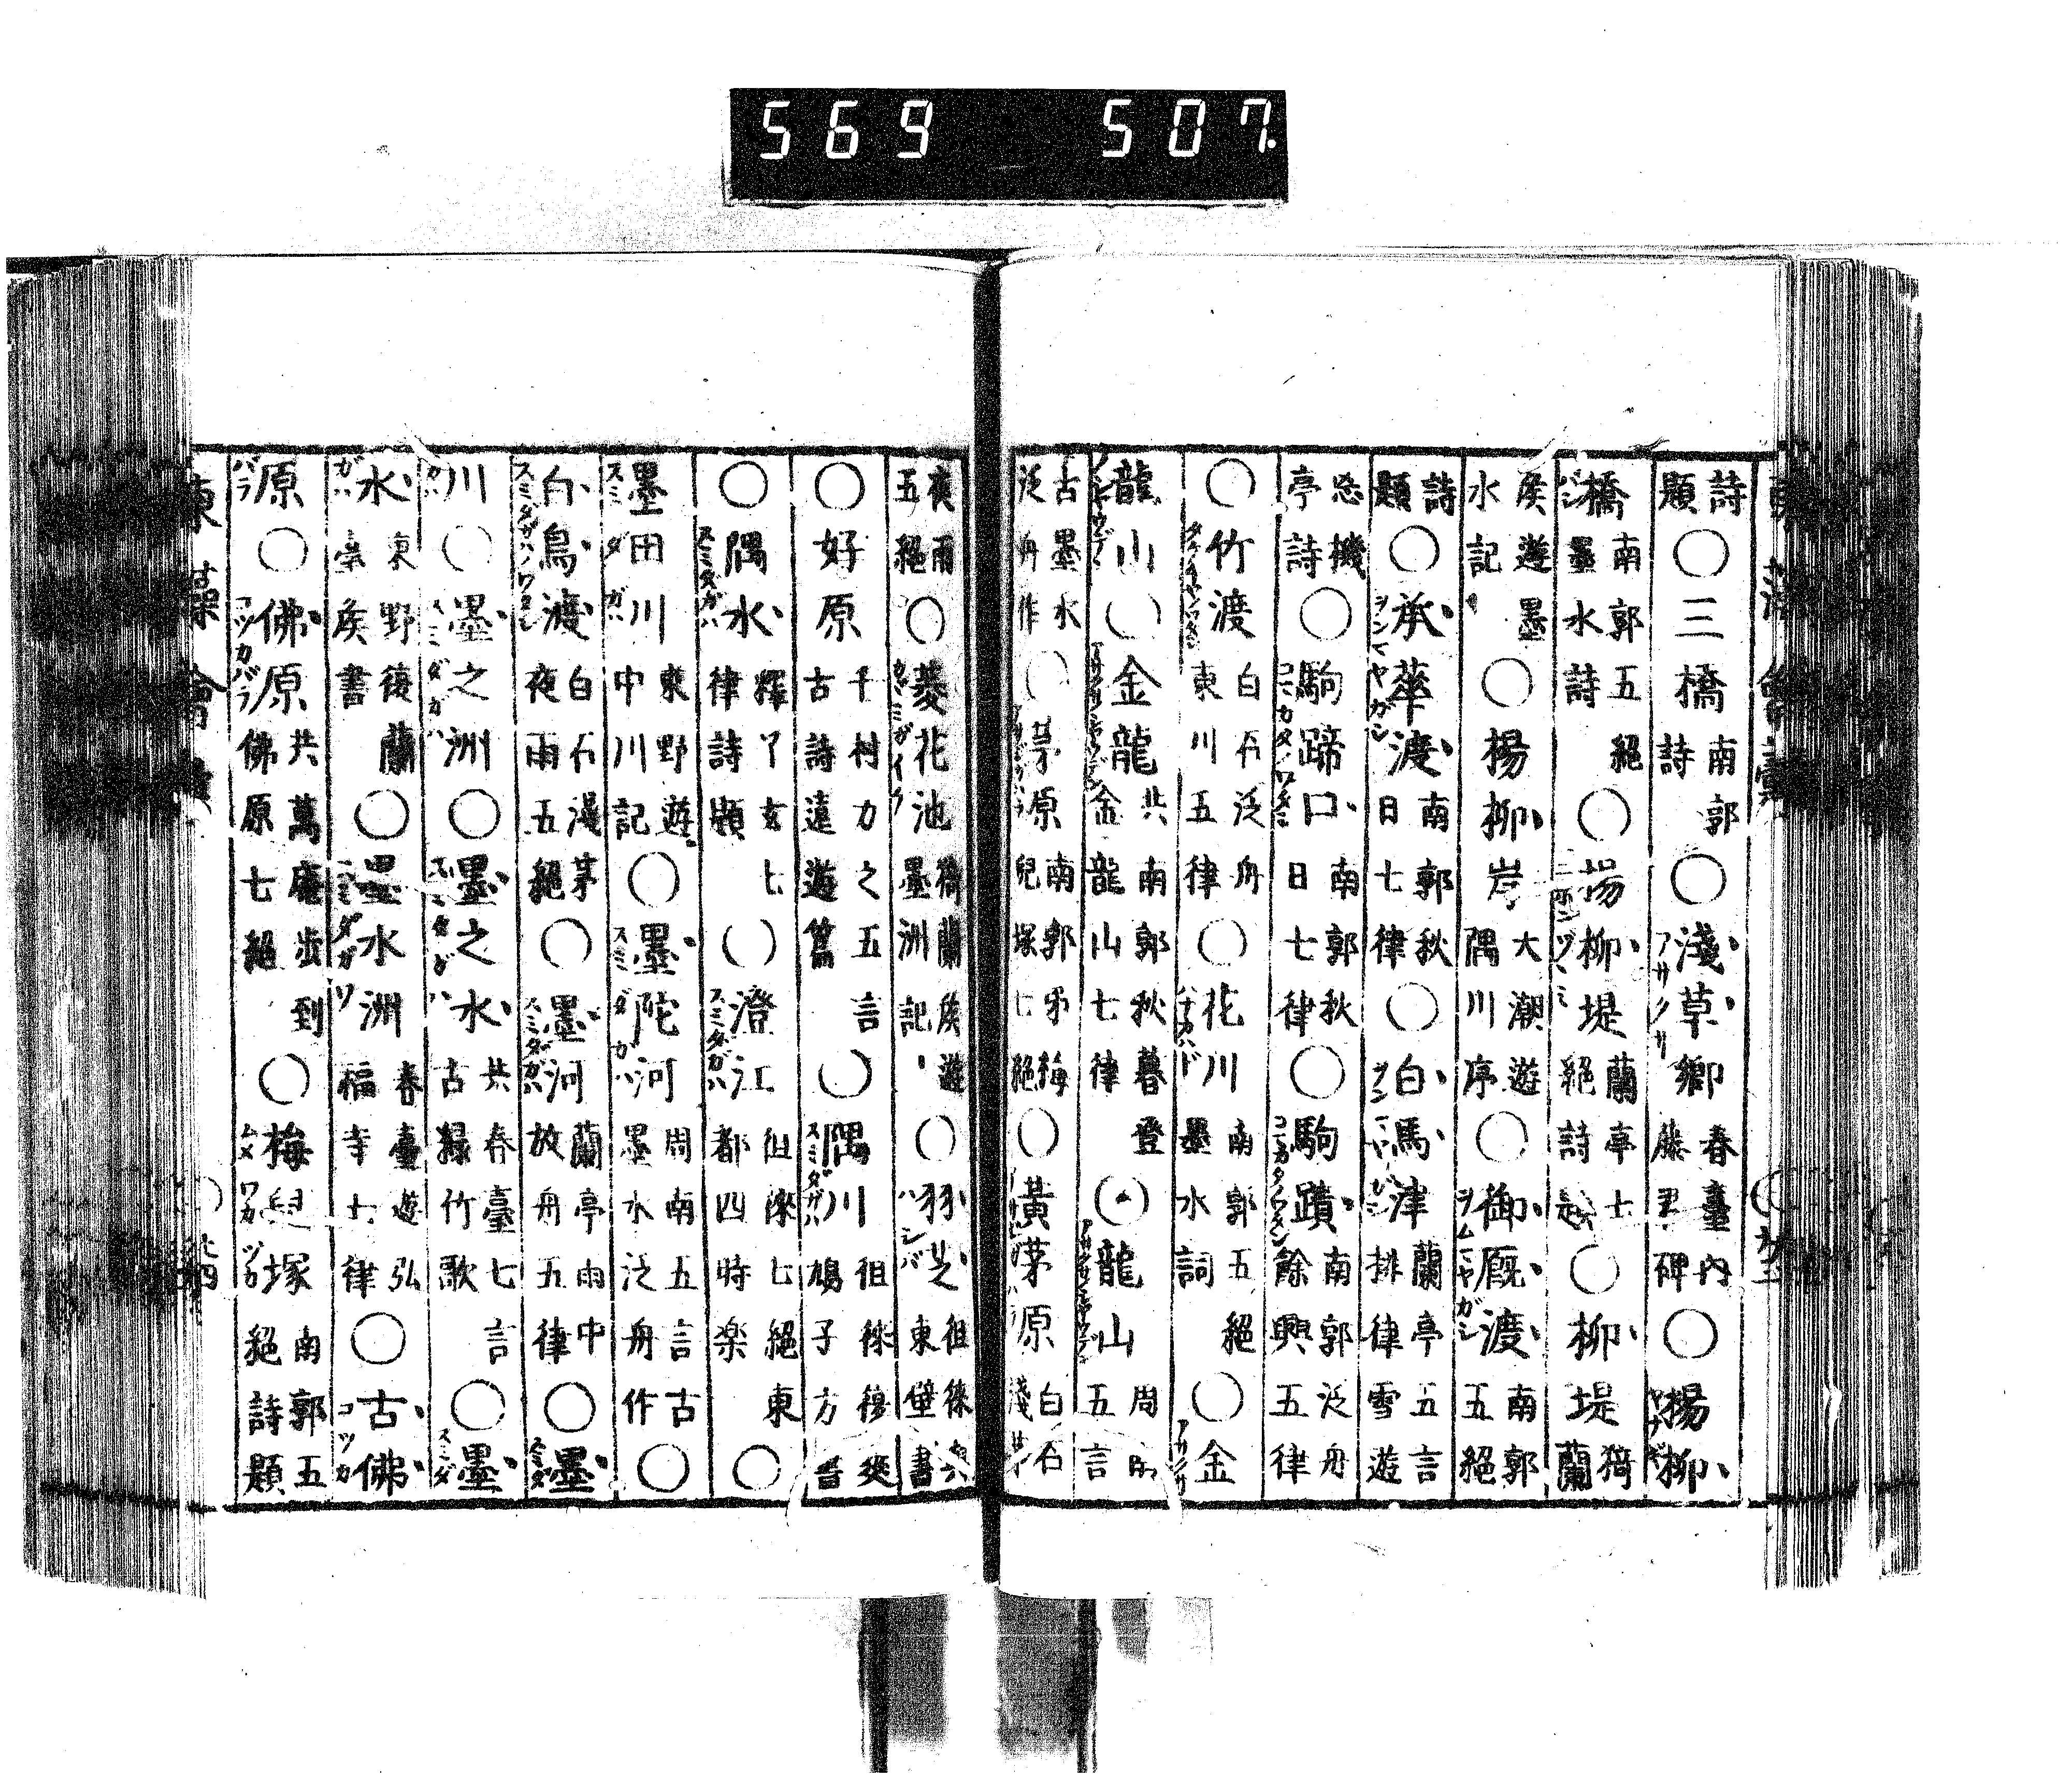 569 507.
詩題○三橋南郭詩○淺草郷春臺内藤君碑○楊柳
橋南郭五絕墨水詩○楊柳堤蘭亭七絕詩○柳堤猗蘭
侯遊墨水記○楊柳岸大潮遊隅川亭○御厩渡南郭五絕
詩題○承華渡南郭秋日七律○白馬津蘭亭五言排律雪遊
忘機亭詩○駒蹄口南郭秋日七律○駒蹟南郭泛舟餘興五律
○竹渡白石泛舟東川五律○花川南郭五絕墨水詞○金
龍山○金龍共南郭秋暮登金龍山七律○龍山周南五言
古墨水泛舟作○茅原南郭梅兒塚七絕○黃茅原白石淺茅
夜雨五絕○菱花池猗蘭侯遊墨洲記○豩芝徂徠東壁書
○好原千村力之五言古詩遠遊篇○隅川徂徠
○隅水釋了玄七律詩題○澄江徂徠七絕東都四時楽○
墨田川東野遊中川記○墨陀河周南五言古墨水泛舟作○
白鳥渡白石淺茅夜雨五絕○墨河蘭亭雨中放舟五律○墨
川○墨之洲○墨之水共春臺七言古緑竹歌○墨
水東野後蘭臺侯書○墨水洲春臺遊弘福寺七律○古佛
原○佛原共萬庵步到佛原七絕○梅兒塚南郭五絕詩題